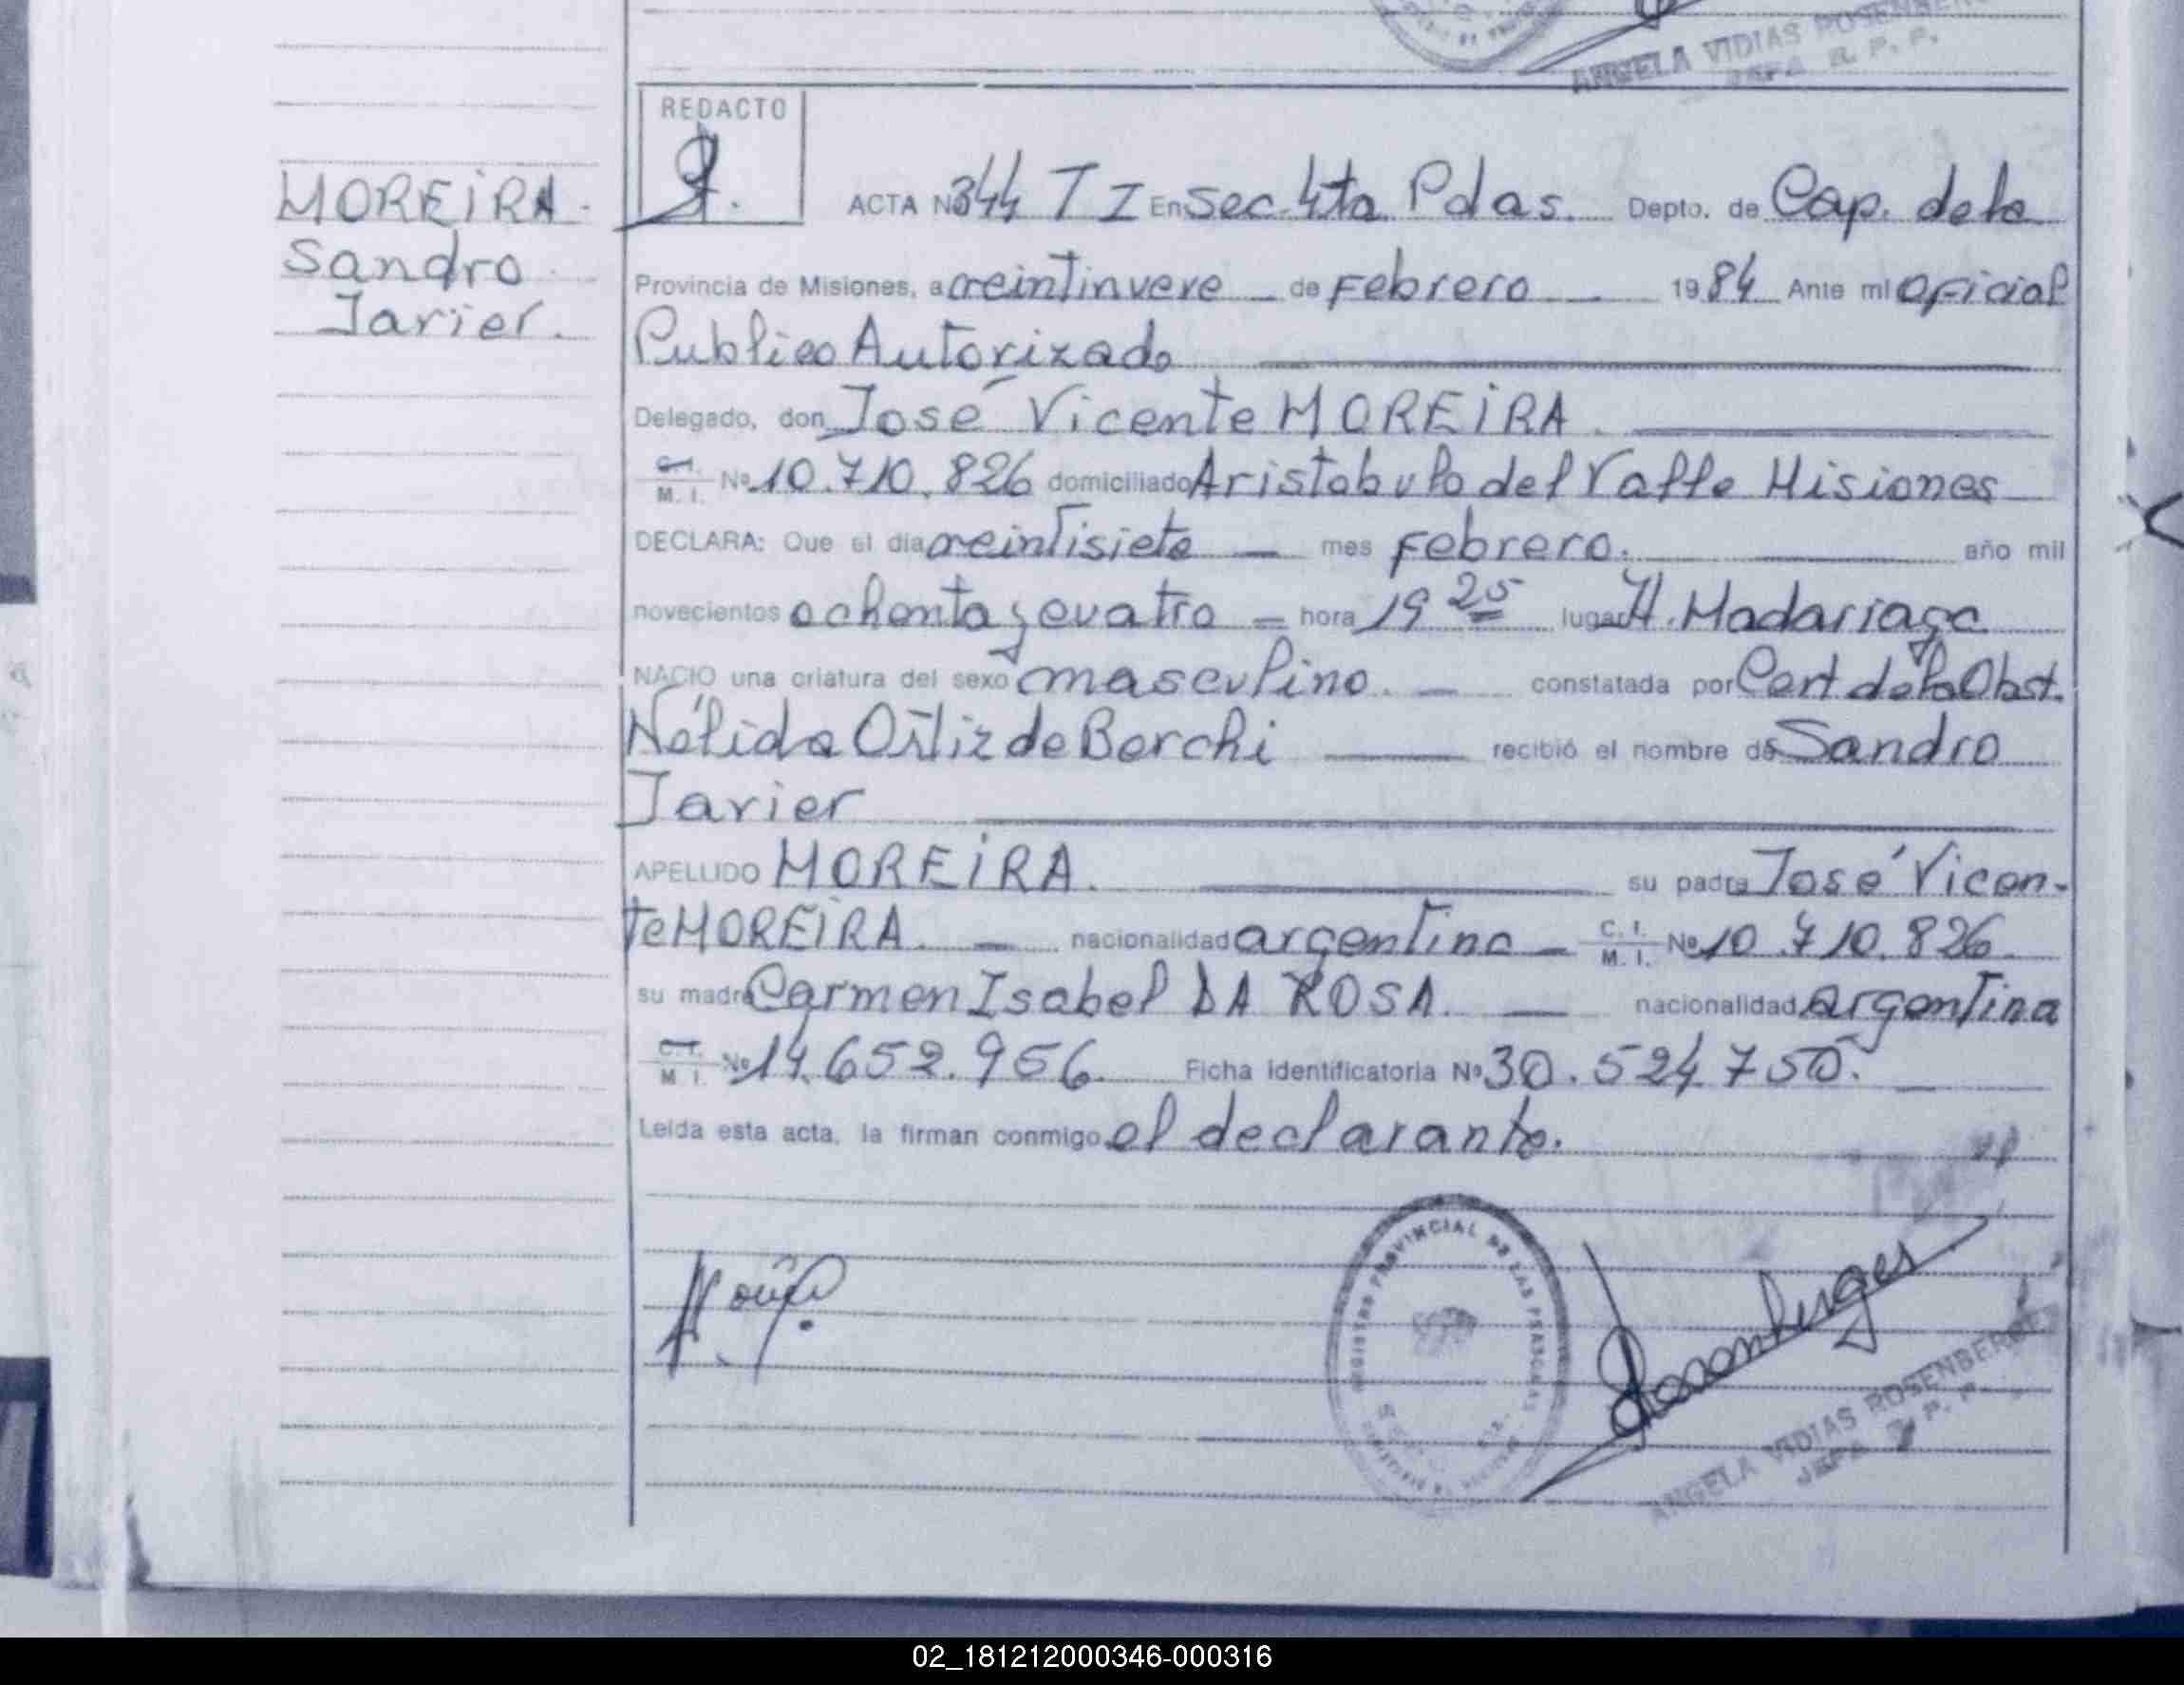 ANGELA VIDIAS ROSENBERG
JEFA R. P. P.
REDACTO
MOREIRA.
Sandro
Javier.
ACTA Nº 344 T I En Sec. 4ta Pdas. Depto. de Cap. de la
Provincia de Misiones, a veintinueve de Febrero 1984 Ante mi Oficial
Publico Autorizado
Delegado, don José Vicente MOREIRA.
C.I. M. I. Nº 10.710.826 domiciliado Aristobulo del Valle Misiones
DECLARA: Que el día veintisiete mes Febrero. año mil
novecientos ochenta y cuatro hora 19 25 lugar H. Madariaga
NACIO una criatura del sexo masculino. constatada por Cert. de la Obst.
Nélida Ortiz de Borchi recibió el nombre de Sandro
Javier
APELLIDO MOREIRA. su padre José Vicen-
te MOREIRA. nacionalidad argentina C. I. M. I. Nº 10.710.826.
su madre Carmen Isabel DA ROSA. nacionalidad argentina
C.I. M I. Nº 14.652.956. Ficha identificatoria Nº 30.524.750.
Leída esta acta, la firman conmigo el declarante.
REGISTRO PROVINCIAL DE LAS PERSONAS
ANGELA VIDIAS ROSENBERG
JEFA R. P. P.
02_181212000346-000316